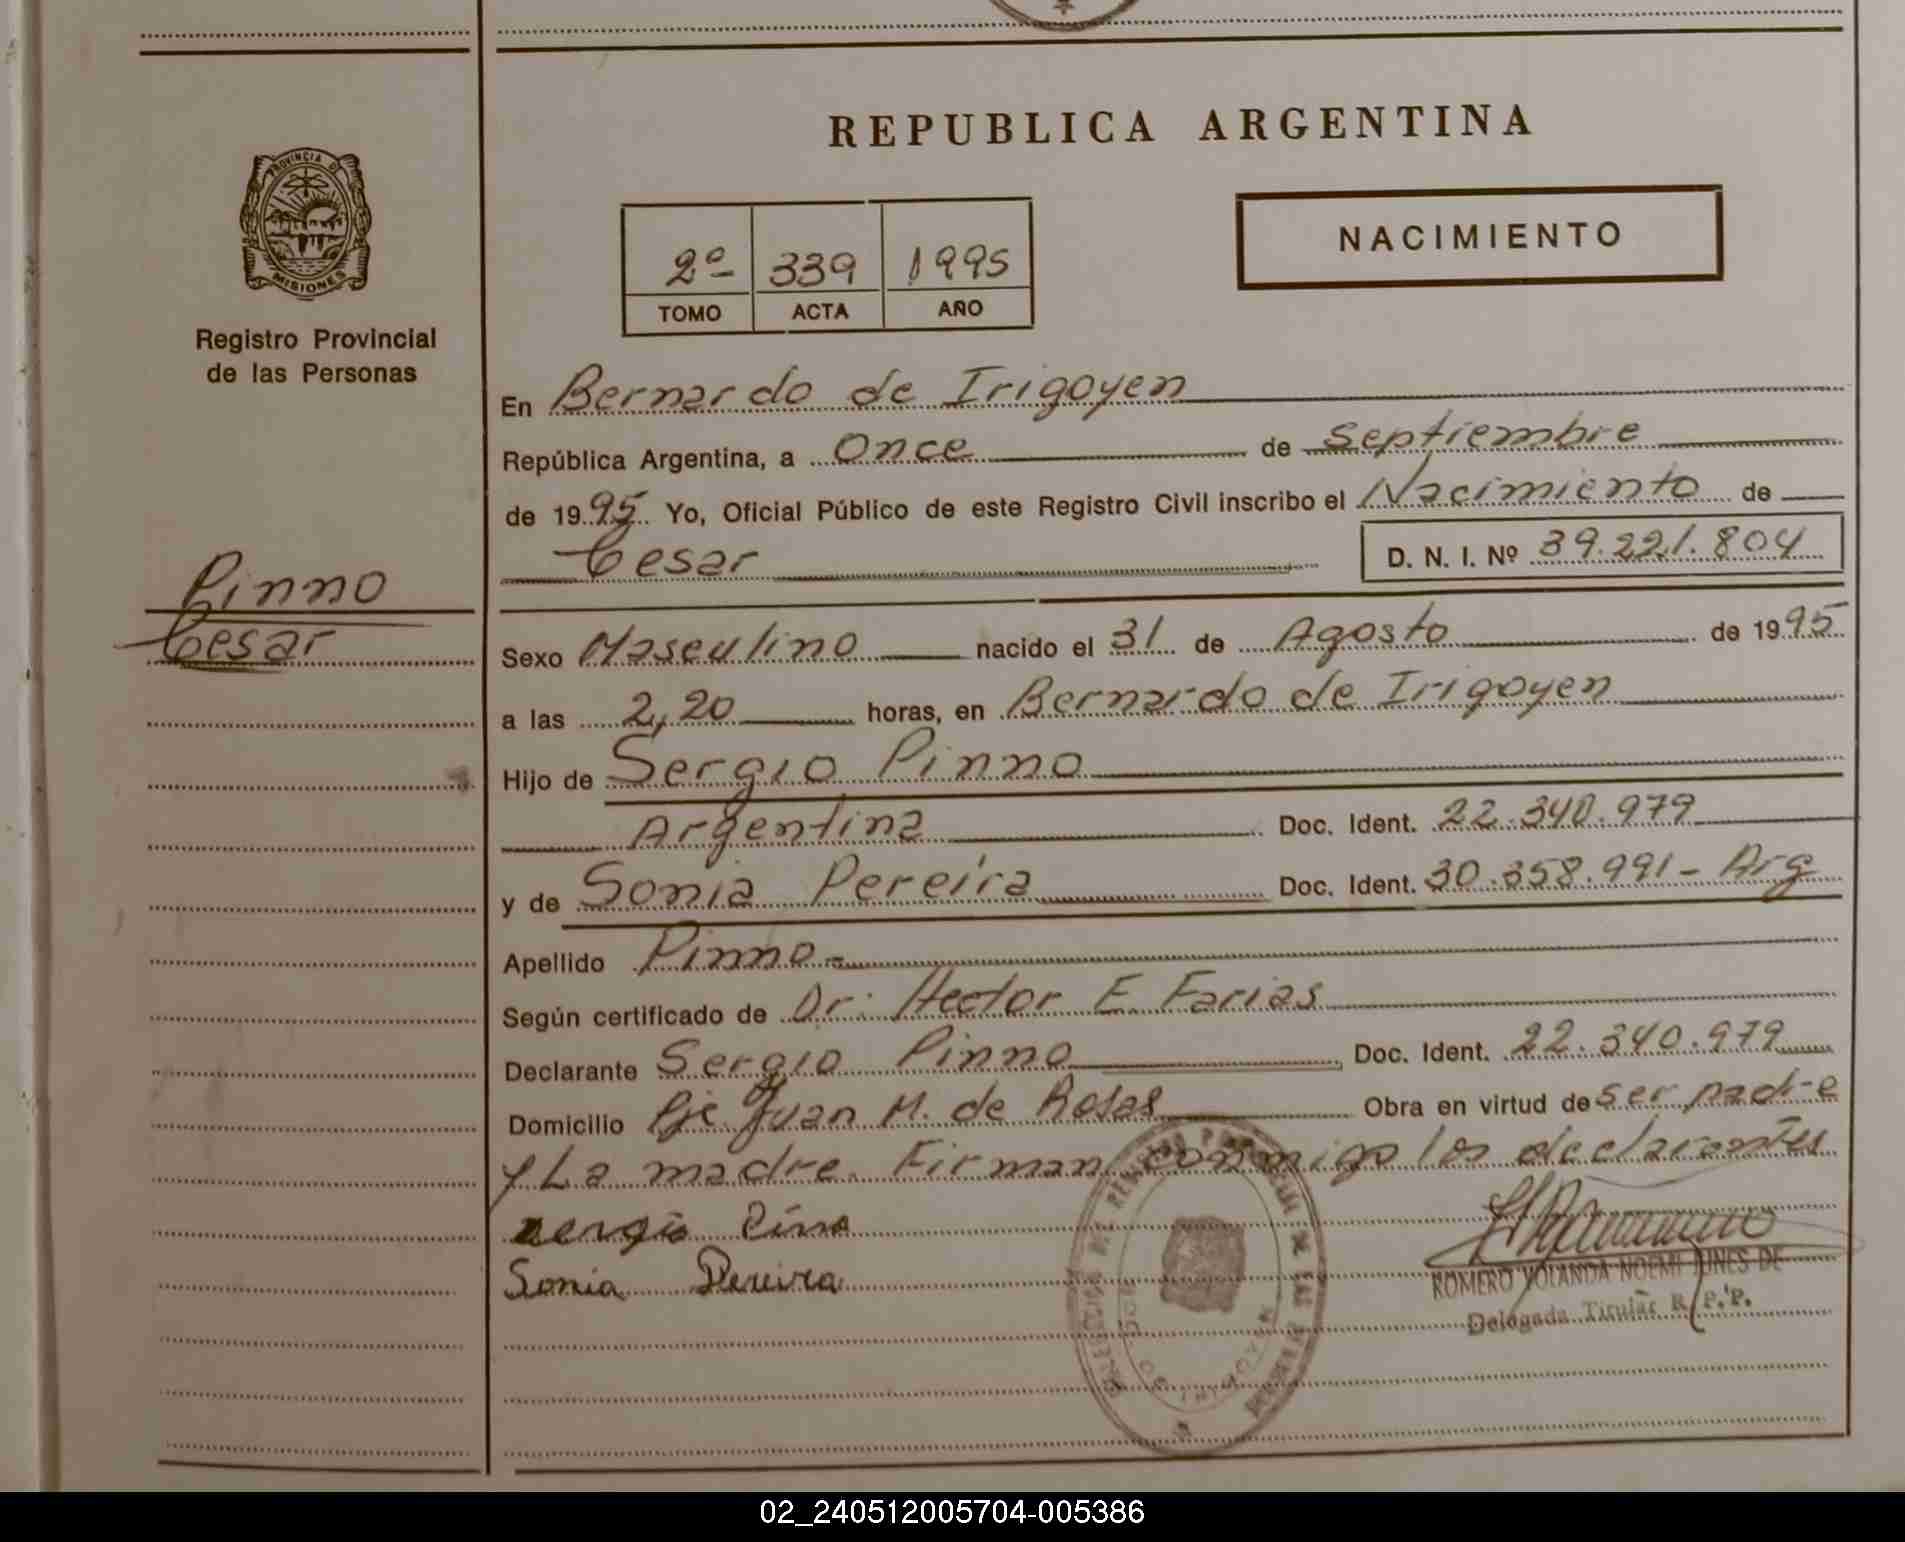 REPUBLICA ARGENTINA
PROVINCIA DE
MISIONES
Registro Provincial
de las Personas
2º 339 1995
TOMO ACTA AÑO
NACIMIENTO
En Bernardo de Irigoyen
República Argentina, a Once de septiembre
de 1995 Yo, Oficial Público de este Registro Civil inscribo el Nacimiento de
Cesar D. N. I. Nº 39.221.804
Pinno
Cesar
Sexo Masculino nacido el 31 de Agosto de 1995
a las 2,20 horas, en Bernardo de Irigoyen
Hijo de Sergio Pinno
Argentina Doc. Ident. 22.340.979
y de Sonia Pereira Doc. Ident. 30.358.991 - Arg
Apellido Pinno-
Según certificado de Dr: Hector E. Farias
Declarante Sergio Pinno Doc. Ident. 22.340.979
Domicilio Pje Juan M. de Rosas Obra en virtud de ser padre
y La madre. Firman conmigo los declarantes
sergio Pino
Sonia Pereira
ROMERO YOLANDA NOEMI JUNES DE
Delegada Titular R.P.P.
02_240512005704-005386